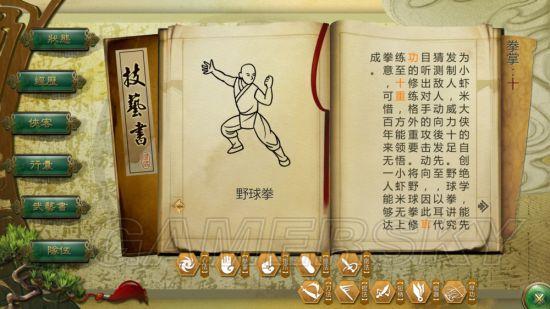 狀態
經歷
俠客
行囊
武藝書
隊伍
技藝書
野球拳
拳掌：十
为小虾米大侠的自创绝学，能先
发制人，威力十足。野球拳讲究
猜测敌人动向後发先至，以耳代
目听出对手的攻击动向，因此重
功的修练，格外重要。将野球拳修
練至十重，方能领悟小虾米无上
拳意，可惜百年来无一人能够达
成。
GAMERSKY